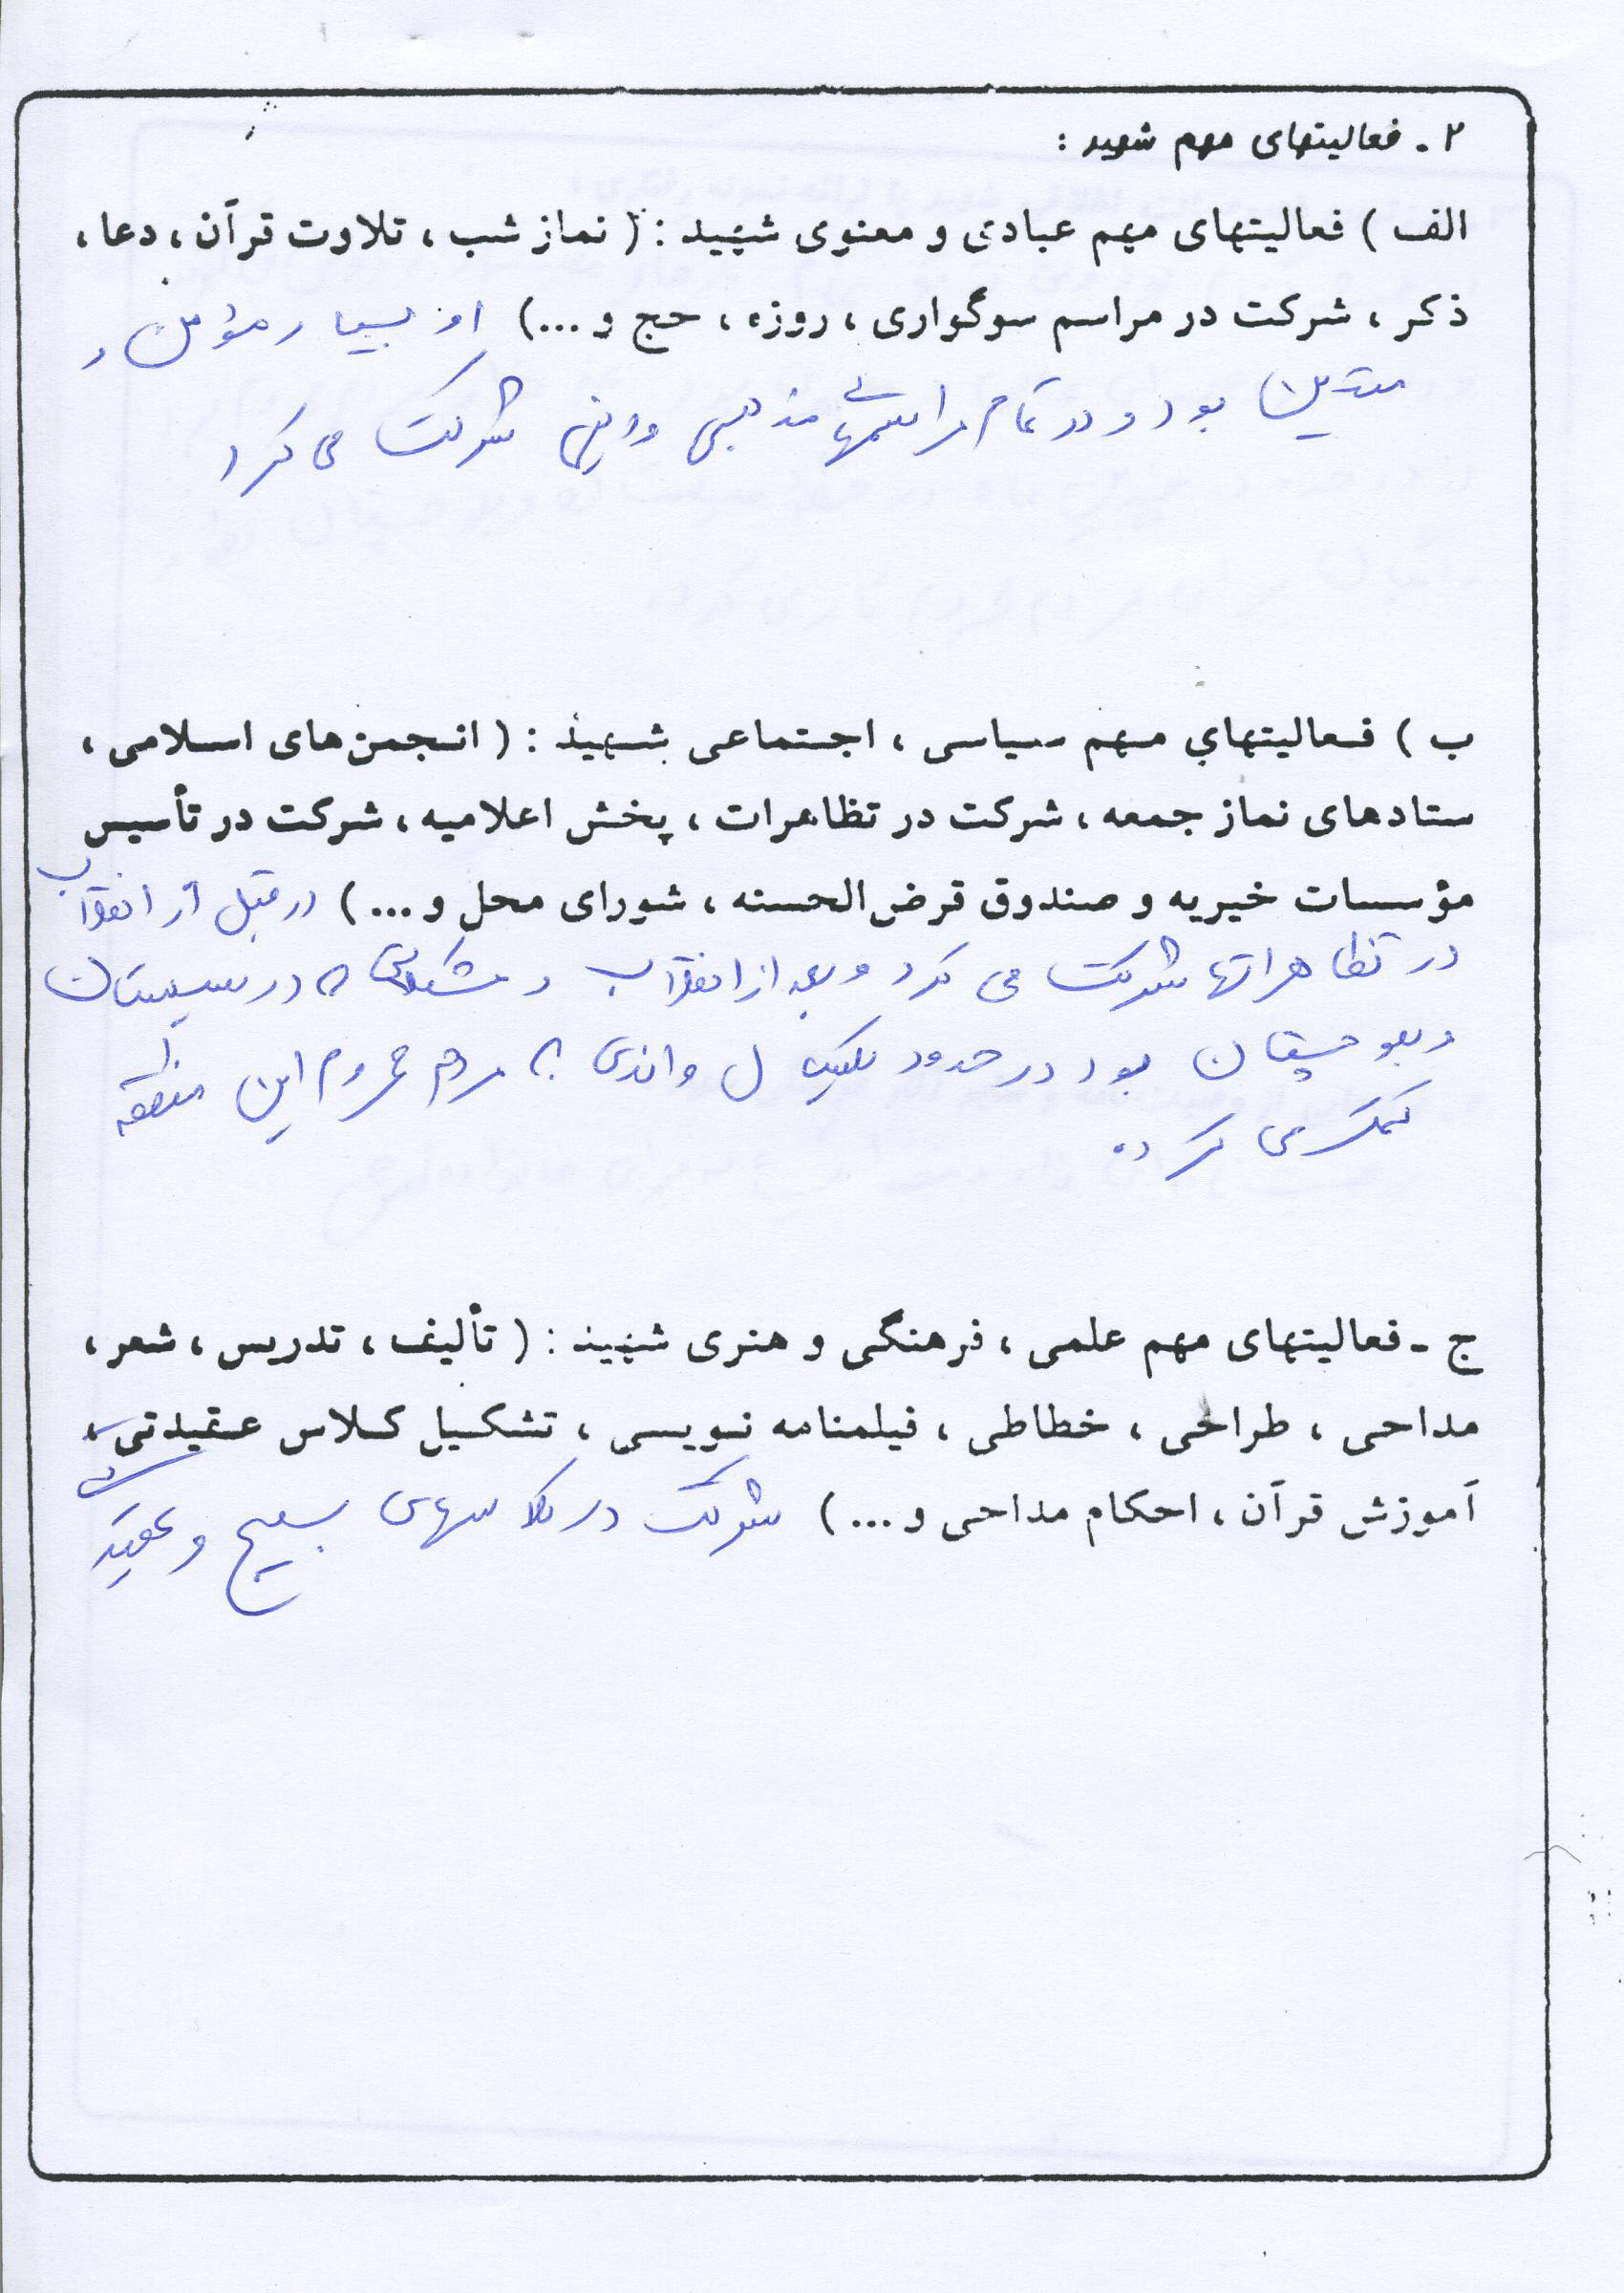 ۲ - فعالیتهای مهم شهید :
الف ) فعالیتهای مهم عبادی و معنوی شهید : ( نماز شب ، تلاوت قرآن ، دعا ،
ذکر ، شرکت در مراسم سوگواری ، روزه ، حج و ...) او بسیار مؤمن و
متدین بود و در تمام مراسمهای مذهبی و دینی شرکت می کرد
ب ) فعالیتهای مهم سیاسی ، اجتماعی شهید : ( انجمن‌های اسلامی ،
ستادهای نماز جمعه ، شرکت در تظاهرات ، پخش اعلامیه ، شرکت در تأسیس
مؤسسات خیریه و صندوق قرض‌الحسنه ، شورای محل و ...) در قبل از انقلاب
در تظاهراتها شرکت می کرد و بعد از انقلاب و که در سیستان
و بلوچستان بود در حدود یکسال و اندی به مردم محروم این منطقه
کمک می کرد.
ج - فعالیتهای مهم علمی ، فرهنگی و هنری شهید : ( تألیف ، تدریس ، شعر ،
مداحی ، طراحی ، خطاطی ، فیلمنامه نویسی ، تشکیل کلاس عقیدتی ،
آموزش قرآن ، احکام مداحی و ...) شرکت در کلاسهای بسیج و عقیدتی